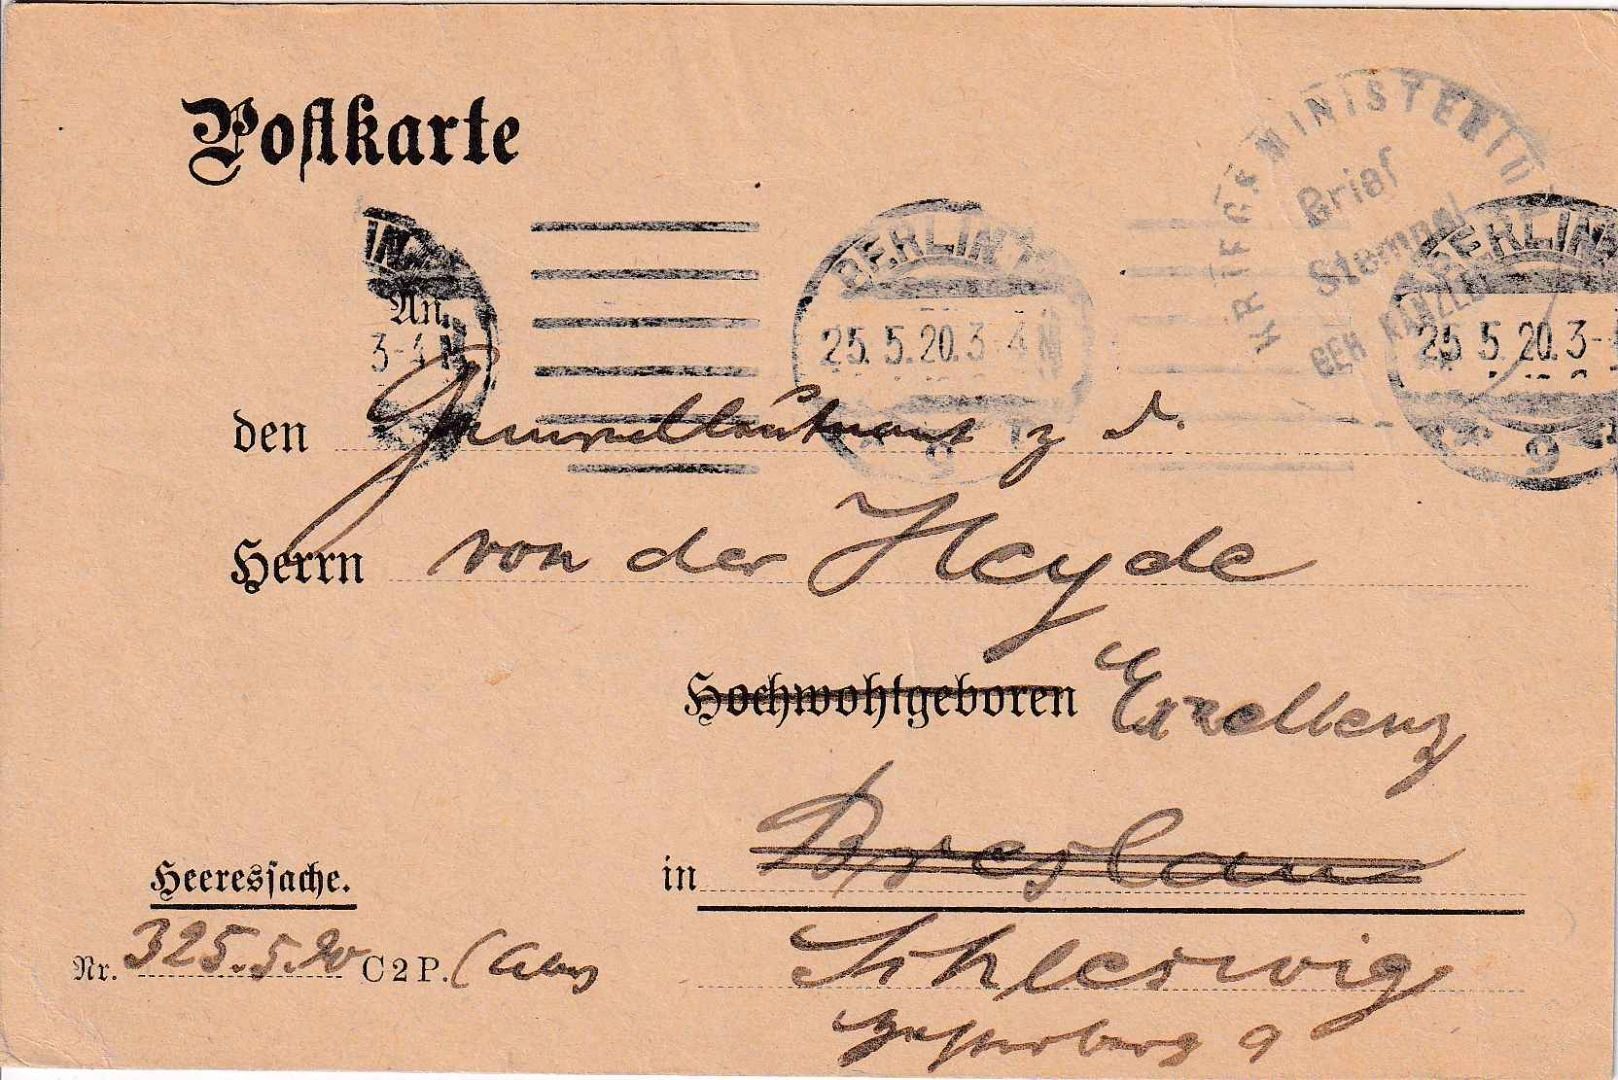 Postkarte
KRIEGSMINISTERIUM
Brief
Stempel
GEH. KANZLEI
BERLIN
25.5.20.3-4N
9
BERLIN
25.5.20.3-
9
IN
3-4N
An
den Generalleutnant z. D.
Herrn von der Heyde
Hochwohlgeboren Exzellenz
Heeressache.
in Breslau
Nr. 325.5.20 C2P.
Schleswig
9